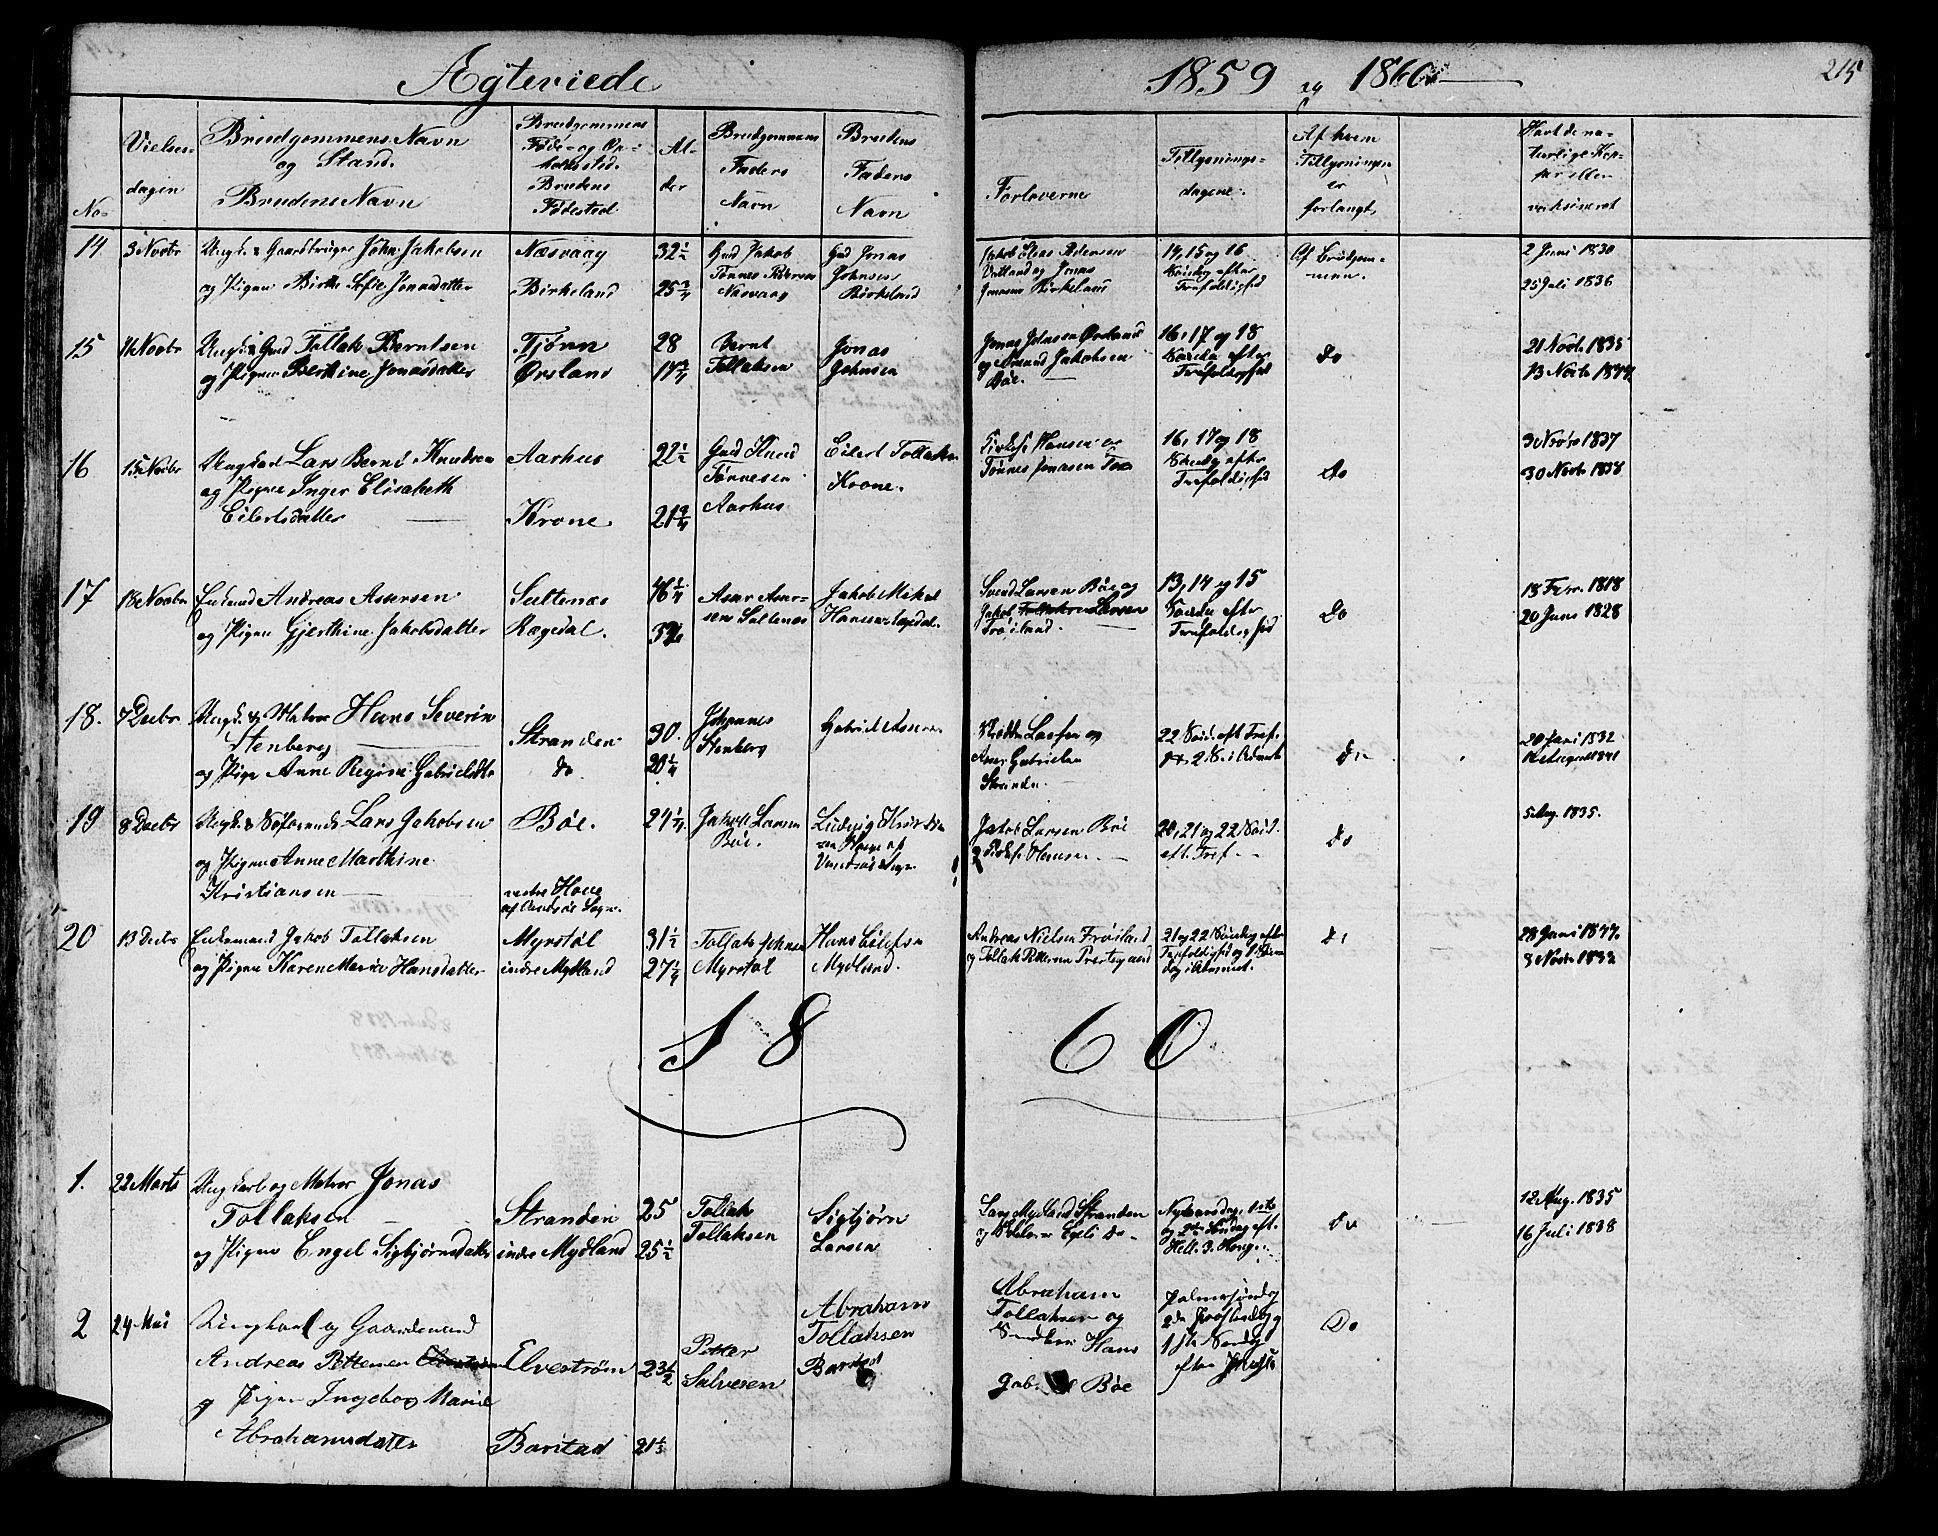 Ægteviede
1859 og 1860
215
No
Vielses-
dagen
Brudgommens Navn
og Stand.
Brudens Navn
Brudgommens
Føde- og Op-
holdssted.
Brudens
Fødested
Al-
der
Brudgommens
Faders
Navn
Brudens
Faders
Navn
Forloverne
Tillysnings-
dagene.
Af hvem
Tillysningen
er
forlangt
Havt de na-
turlige Kop-
per eller
vaksineret
14 3 Novbr
Ungk. & Gaardbruger John Jakobsen
og Pigen Birthe Sofie Jonasdatter
Næsvaag
Birkeland
32½
25¾
Gmd Jakob
Tønnes Pedersen
Næsvaag
Gmd Jonas
Johnsen
Birkeland
Jakob Elias Pedersen
Jonas
Jonasen Birkeland
14, 15 og 16
Søndag efter
Trefoldighed
Af Brudgom-
men.
2 Juni 1830
25 Juli 1836
15 11 Novbr
Ungk. & Gmd Tollak Berntsen
og Pigen Berthine Jonasdatter
Tjørn
Ørsland
28
17¾
Bernt
Tollaksen
Jonas
Johnsen
Jonas Johnsen Ørsland
og Amund Jakobsen
Bøe.
16, 17 og 18
Søndag efter
Trefoldighed
do
21 Novb. 1835
13 Novbr 1844
16 15 Novbr
Ungkarl Lars Bernt Knudsen
og Pigen Inger Elisabeth
Eilertsdatter
Aarhus
Krone.
22½
21¾
Gmd Knud
Tønnesen
Aarhus
Eilert Tollaksen
Krone.
Hansen og
Tønnes Jonasen
16, 17 og 18
Søndag efter
Trefoldighed
Do
3 Novbr 1837
30 Novbr 1838
17 18 Novbr
Enkemd Andreas Assersen
og Pigen Gjerthine Jakobsdatter
Saltenæs
Rægedal.
46¼
Asser Asser-
sen Saltenæs
Jakob Mikal
Hansen Rægedal
Svend Larsen Bøe og
Jakob Larsen
Frøiland.
13, 14 og 15
Søndag efter
Trefoldighed
Do
18 Febr. 1818
20 Juni 1828
18. 7 Decbr
Ungk. & Matros Hans Severin
Stenberg
og Pige Anne Regine Gabrielsdtr
Stranden
do
30.
20¼
Johannes
Stenberg
Gabriel Assersen
Larsen og
Asser Gabrielsen
Stranden
22 Sønd. eft Tref.
og 1 & 2 S. i Advent
do
20 Juni 1832
19 8 Decbr
Ungk. & Søfarende Lars Jakobsen
og Pigen Anne Marthine
Kristiansen
Bøe.
vestre Houg
af Sogn.
24¼
Jakob Larsen
Bøe.
Ludvig Kristian-
sen Houge af
Sogn
Jakob Larsen Bøe
Hansen.
20, 21 og 22 Sønd.
eft. Tref.
do
5 Aug. 1835.
20 13 Decbr
Enkemand Jakob Tollaksen
og Pigen Karen Marie Hansdatter
Myrstøl
indre Mydland
31½
27¼
Tollak Johnsen
Myrstøl
Hans Eilefsen
Mydland.
Andreas Nielsen Frøiland
og Tollak Pettersen Prestegaard
21 og 22 Søndag efter
Trefoldighed og 1 Søn-
dag i Advent.
do
28 Juni 1844.
3 Novbr 1832
1860
1. 22 Marts
Ungkarl og Matros Jonas
Tollaksen
og Pigen Engel Sigbjørnsdatter
Stranden
indre Mydland
25
25½
Tollak
Tollaksen
Sigbjørn
Larsen
Lars Mydland Stranden
og Do
Nyaarsdag, 1ste
og 2de Søndag eft.
Hell. 3 Konger.
do
12 Aug. 1835
16 Juli 1838
2 24 Mai
Ungkarl og Gaardmand
Andreas Pettersen
og Pigen Ingeborg Marie
Abrahamsdatter
Elvestrøm
Barstad
23½
21½
Petter
Salvesen
Abraham
Tollaksen
Barstad
Abraham
Tollaksen og
Hans
Bøe
Palmesøndag
2den Paaskedag og
1ste Søndag
efter Paaske
Do